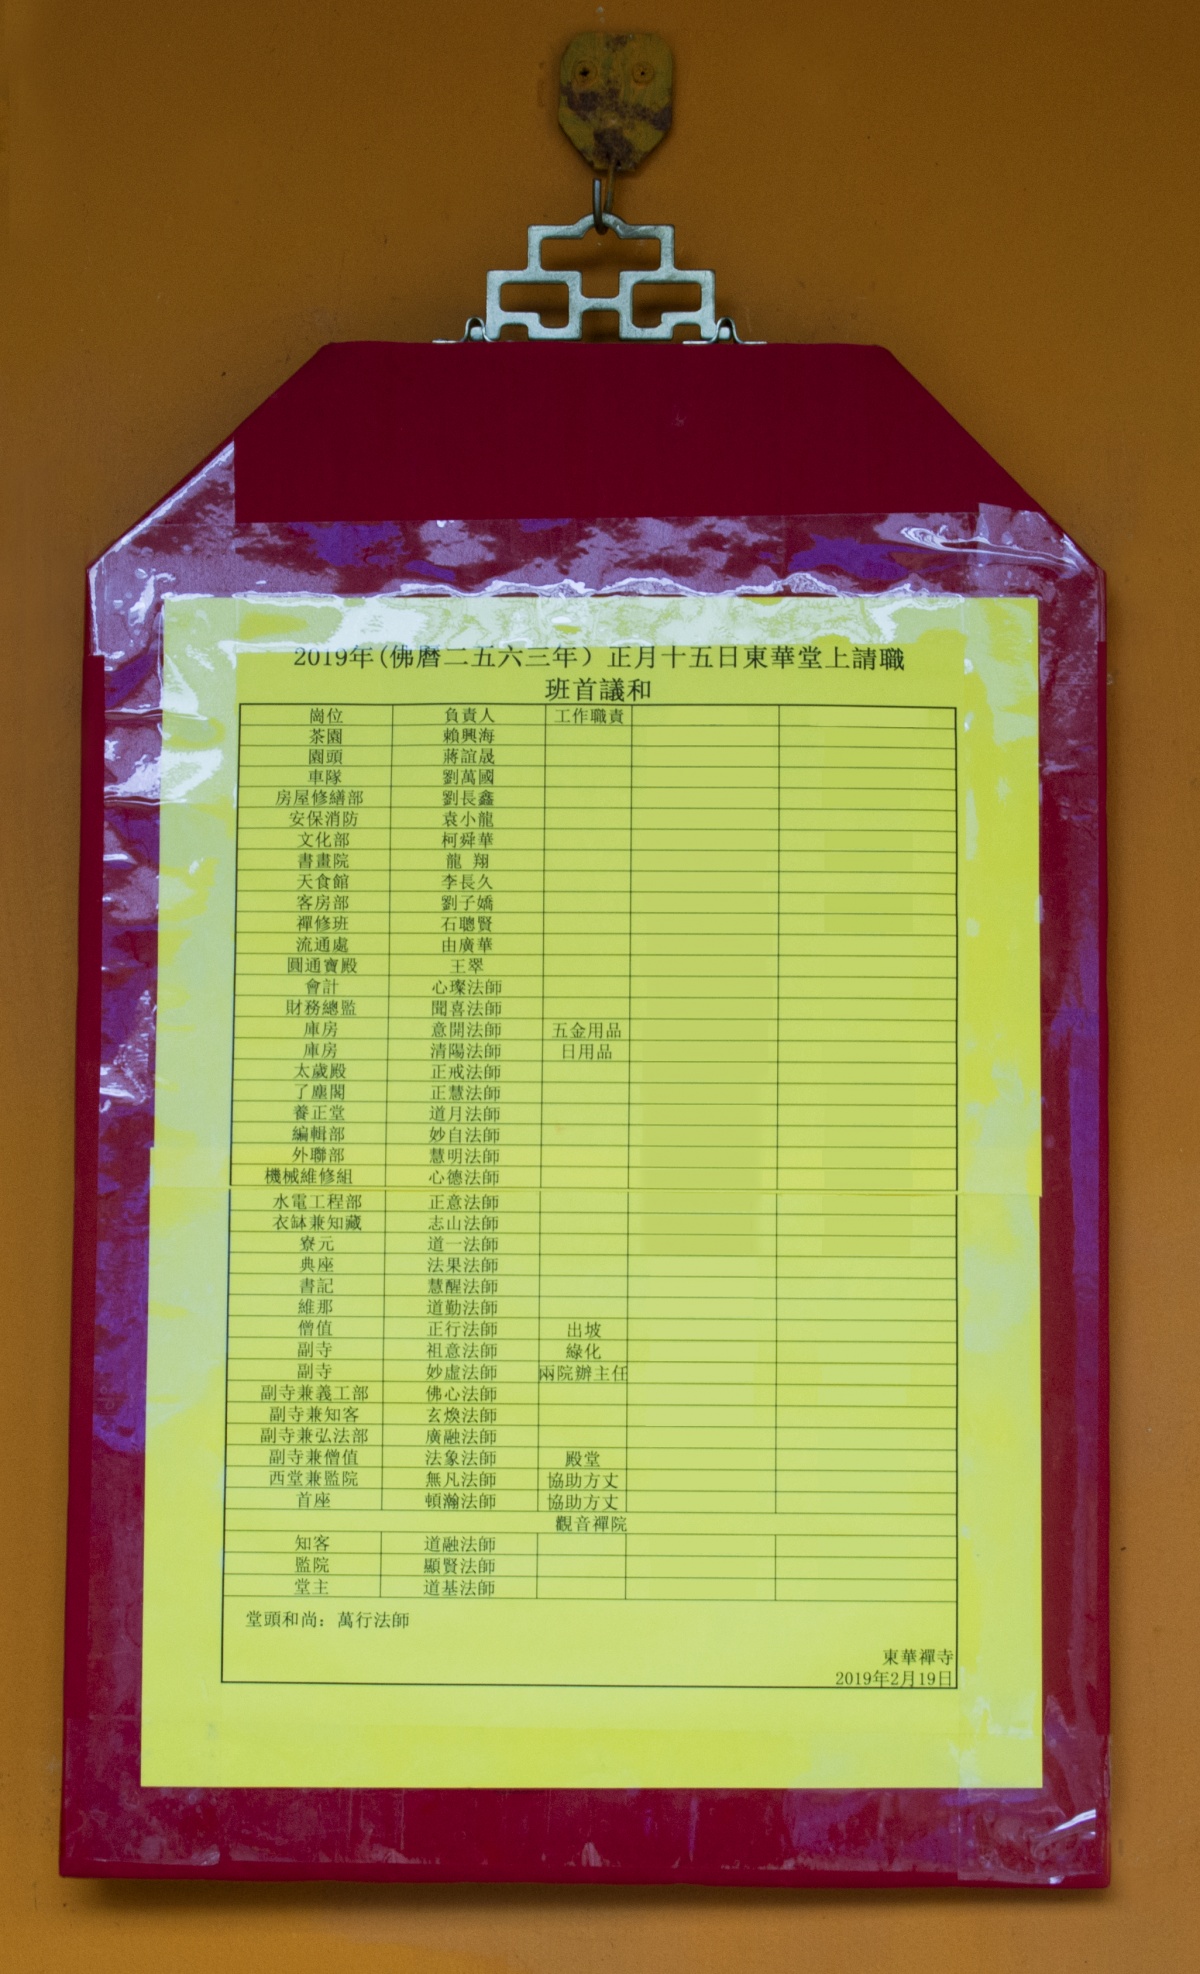 2019年(佛曆二五六三年）正月十五日東華堂上請職
班首議和
崗位 負責人 工作職責
茶園 賴興海
園頭 蔣誼晟
車隊 劉萬國
房屋修繕部 劉長鑫
安保消防 袁小龍
文化部 柯舜華
書畫院 龍 翔
天食館 李長久
客房部 劉子嬌
禪修班 石聰賢
流通處 由廣華
圓通寶殿 王翠
會計 心璨法師
財務總監 聞喜法師
庫房 意開法師 五金用品
庫房 清陽法師 日用品
太歲殿 正戒法師
了塵閣 正慧法師
養正堂 道月法師
編輯部 妙自法師
外聯部 慧明法師
機械維修組 心德法師
水電工程部 正意法師
衣缽兼知藏 志山法師
寮元 道一法師
典座 法果法師
書記 慧醒法師
維那 道勤法師
僧值 正行法師 出坡
副寺 祖意法師 綠化
副寺 妙虛法師 兩院辦主任
副寺兼義工部 佛心法師
副寺兼知客 玄煥法師
副寺兼弘法部 廣融法師
副寺兼僧值 法象法師 殿堂
西堂兼監院 無凡法師 協助方丈
首座 頓瀚法師 協助方丈
觀音禪院
知客 道融法師
監院 顯賢法師
堂主 道基法師
堂頭和尚：萬行法師
東華禪寺
2019年2月19日